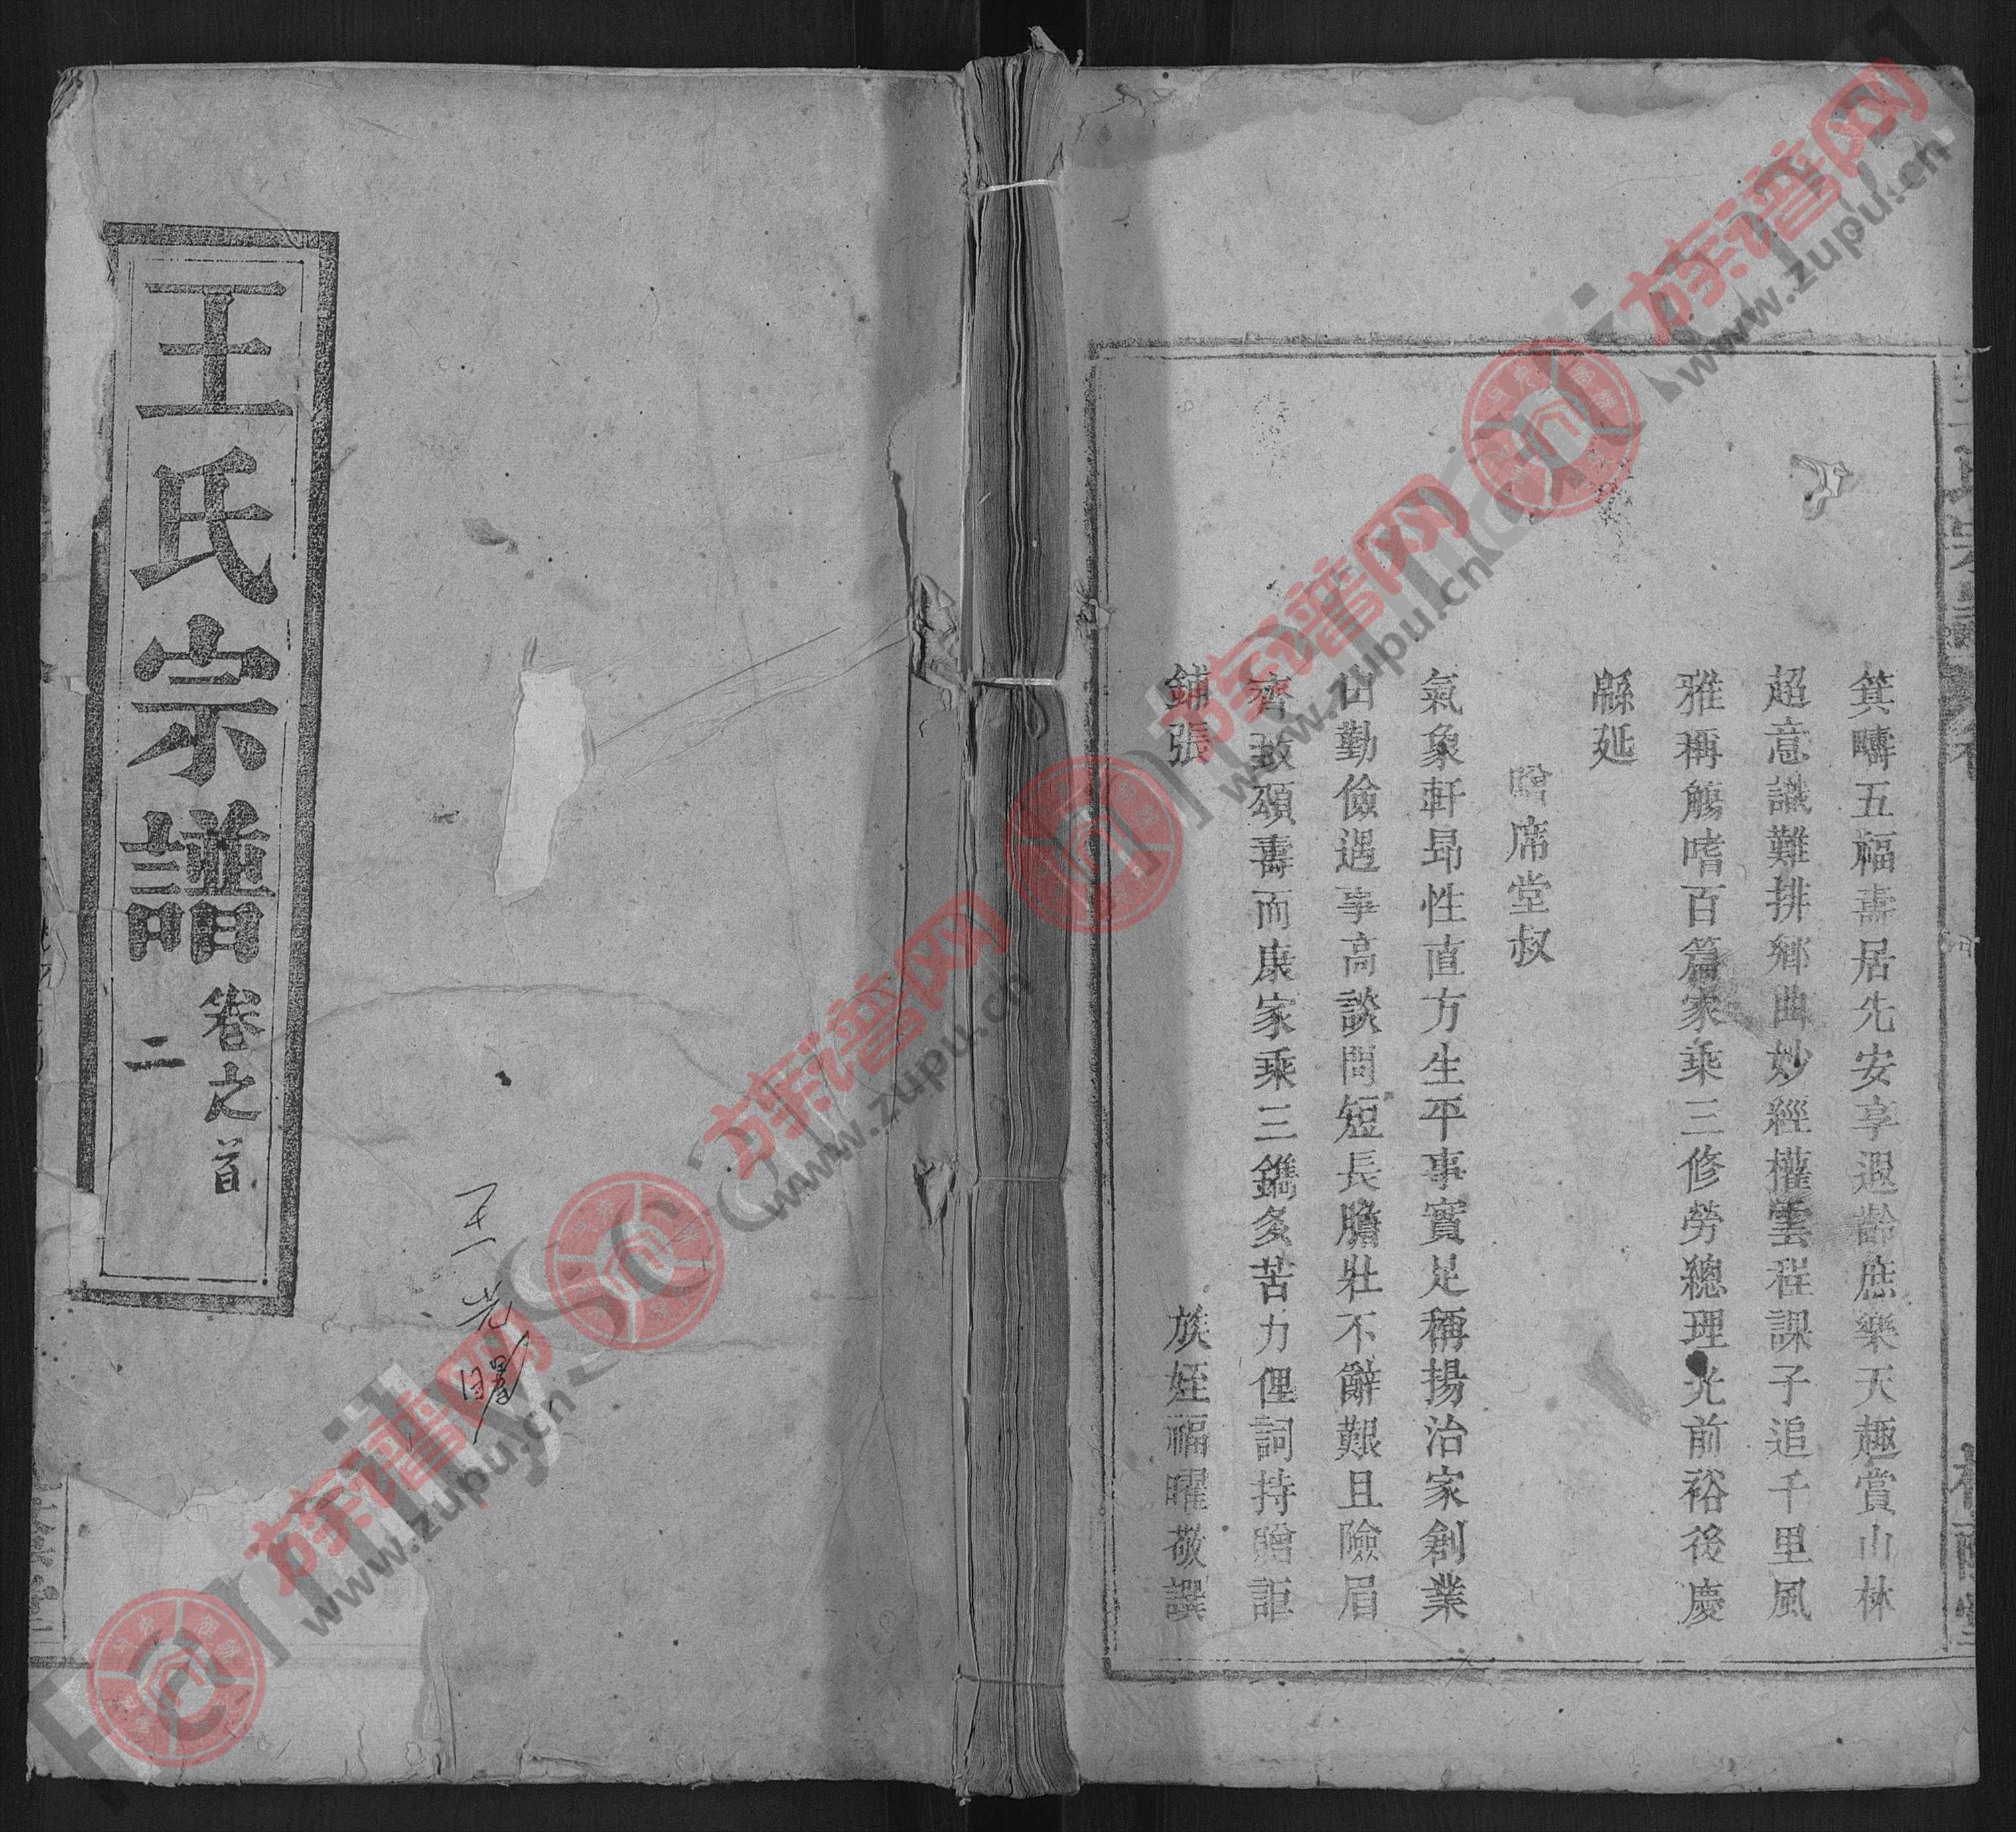 箕疇五福壽居先安享遐齡庶樂天趣賞山林
超意識難排鄉曲妙經權雲程課子追千里風
雅稱觴嗜百篇家乘三修勞總理光前裕後慶
緜延
贈席堂叔
氣象軒昂性直方生平事實足稱揚治家創業
由勤儉遇事高談問短長膽壯不辭艱且險眉
齊致頌壽而康家乘三鐫多苦力俚詞持贈詎
鋪張
族姪福曜敬譔
王氏宗譜
卷之首
二
族谱网
www.zupu.cn
族谱网
www.zupu.cn
族谱网
www.zupu.cn
族谱网
www.zupu.cn